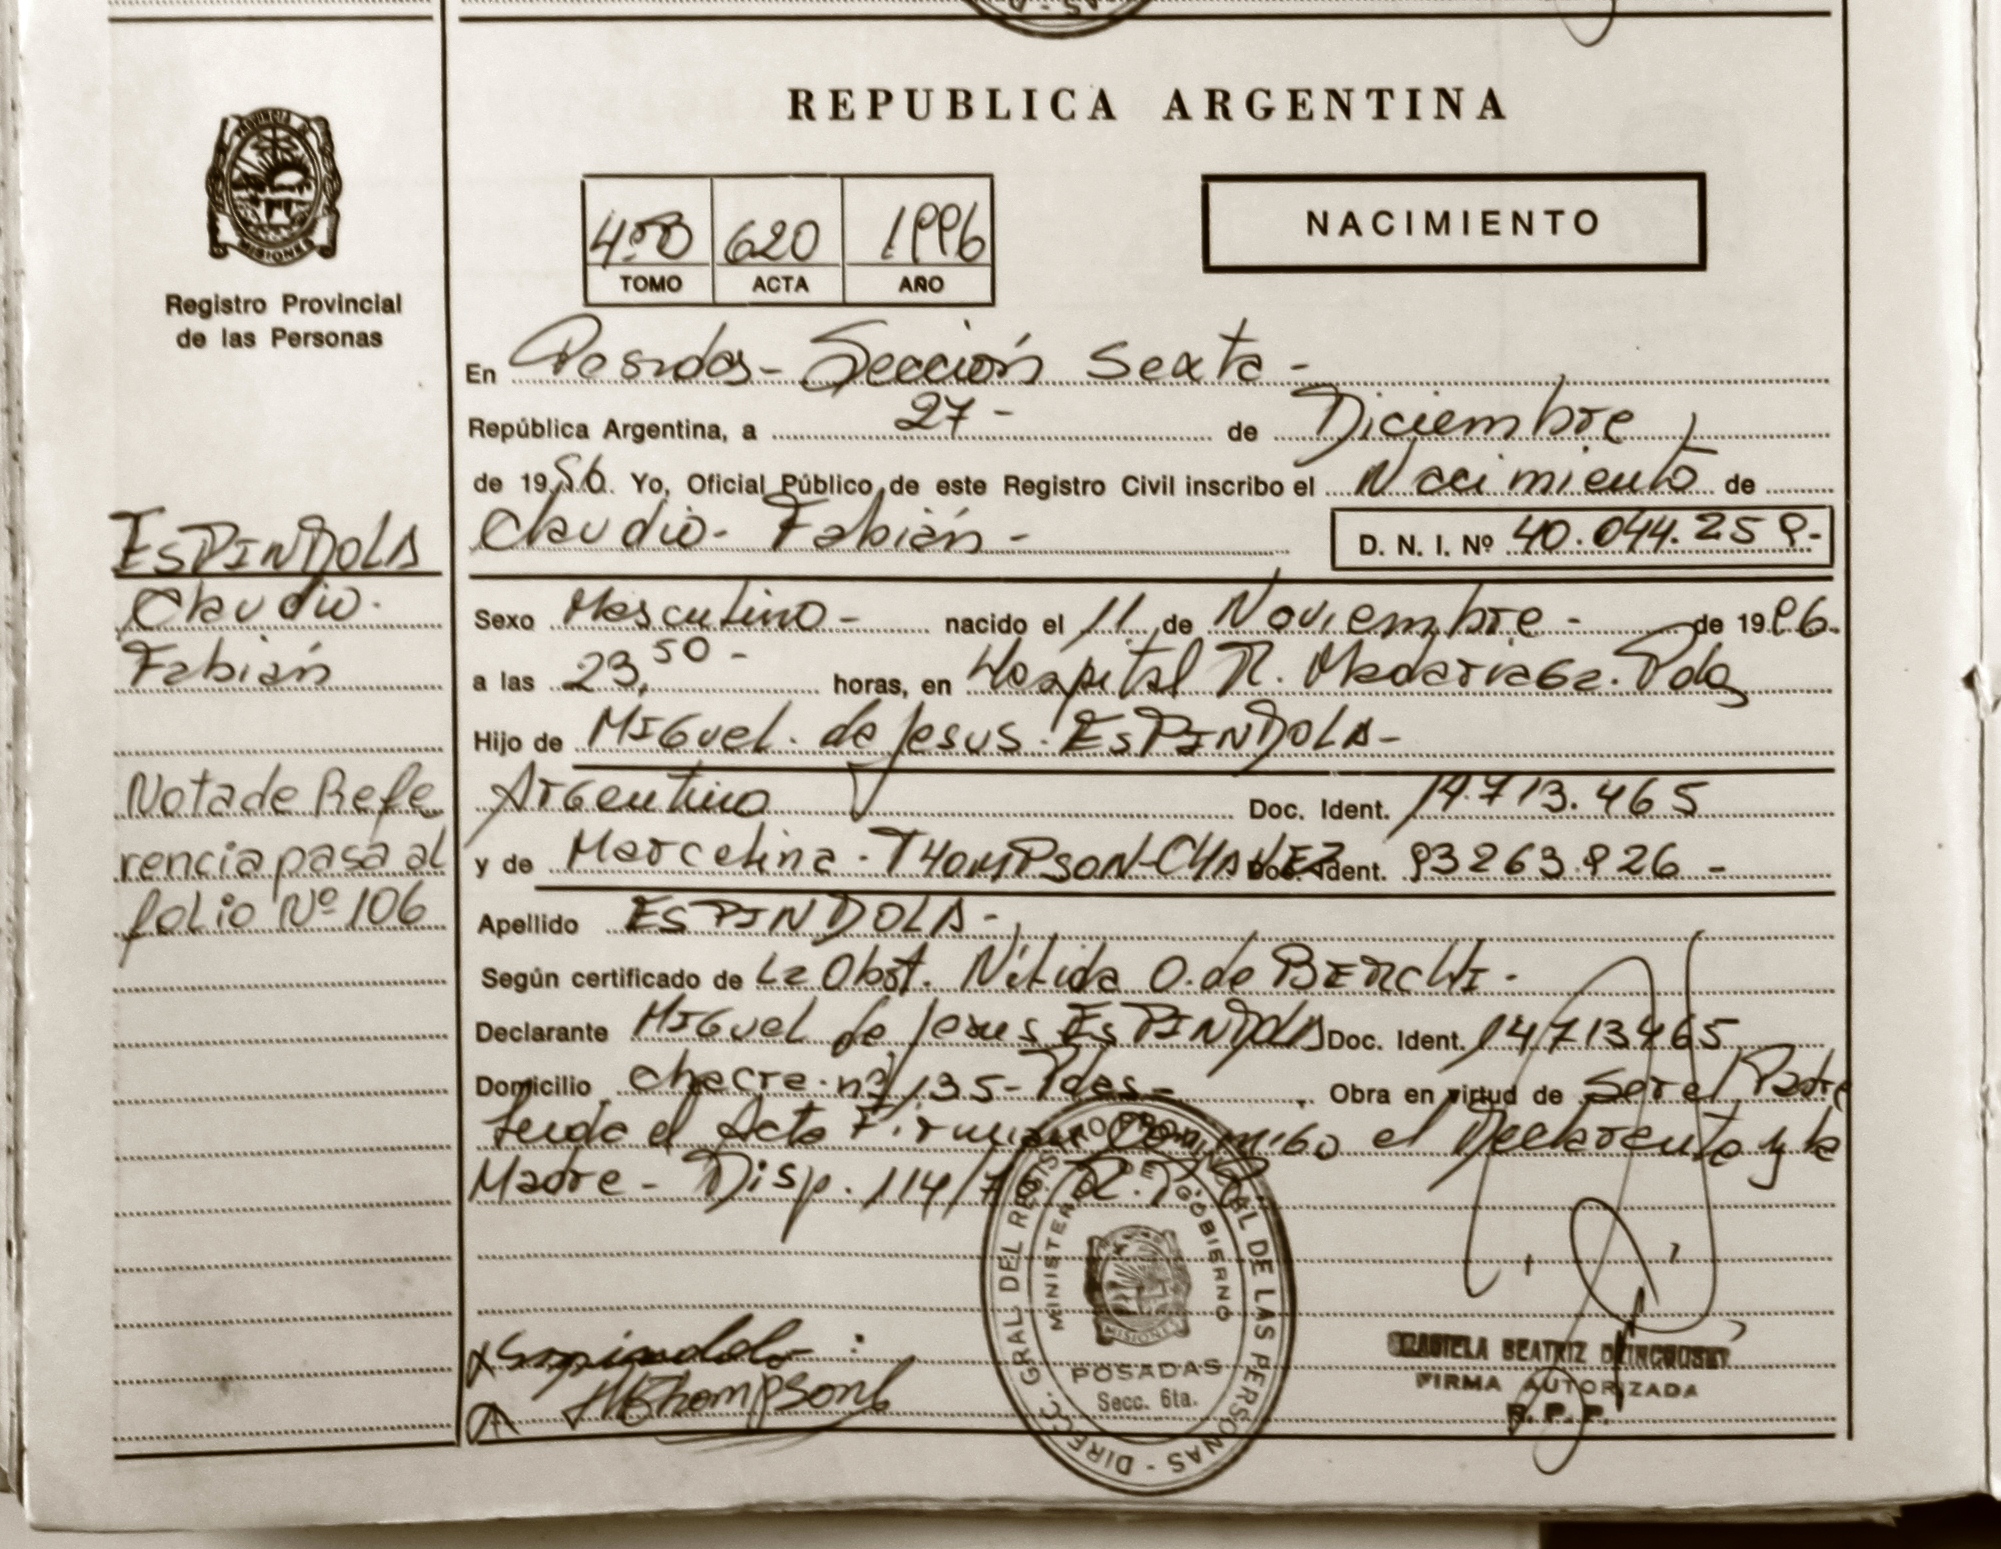 REPUBLICA ARGENTINA
PROVINCIA D MISIONES
Registro Provincial
de las Personas
4º B 620 1996
TOMO ACTA AÑO
NACIMIENTO
En Posadas - Sección Sexta -
República Argentina, a 27 - de Diciembre
de 1996. Yo, Oficial Público de este Registro Civil inscribo el Nacimiento de
Claudio - Fabián -
D. N. I. Nº 40.044.259.-
ESPINDOLA
Claudio.
Fabián
Nota de Refe
rencia pasa al
folio Nº 106
Sexo Masculino - nacido el 11 de Noviembre - de 1996.
a las 23,50 - horas, en Hospital R. Madariaga. Pdas
Hijo de Miguel. de Jesus. ESPINDOLA -
Argentino Doc. Ident. 14.713.465
y de Marcelina - THOMPSON-CHAVEZ Doc. Ident. 93263.926 -
Apellido ESPINDOLA -
Según certificado de La Obst. Nélida O. de BERCHI -
Declarante Miguel de Jesus ESPINDOLA Doc. Ident. 14713465
Domicilio chacra nº 135 - Pdas - Obra en virtud de ser el Padre
Leida el Acta Firman Conmigo el Declarante y la
Madre - Disp. 114/ R.P.P.
DIREC. GRAL DEL REGISTRO PROVINCIAL DE LAS PERSONAS
MINISTERIO DE GOBIERNO
MISIONES
POSADAS
Secc. 6ta.
Espindola
Thompson
GRACIELA BEATRIZ
FIRMA AUTORIZADA
R. P. P.